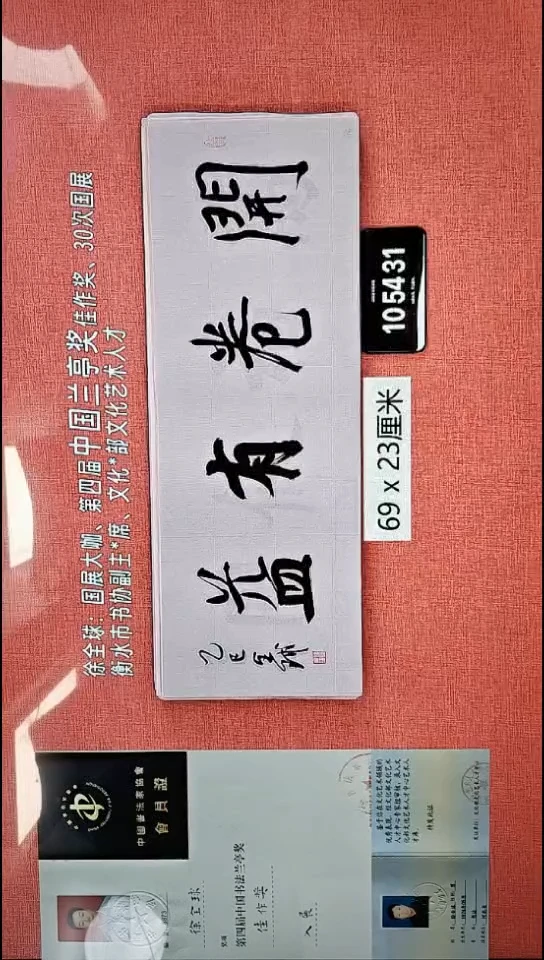 徐全球：国展大咖、第四届中国兰亭奖佳作奖、30次国展
衡水市书协副主*席、文化*部文化艺术人才
開卷有益
乙巳全球
105431
69 x 23厘米
中國書法家協會
會員證
徐全球
第四届中国书法兰亭奖
佳作奖
入展
特发此证